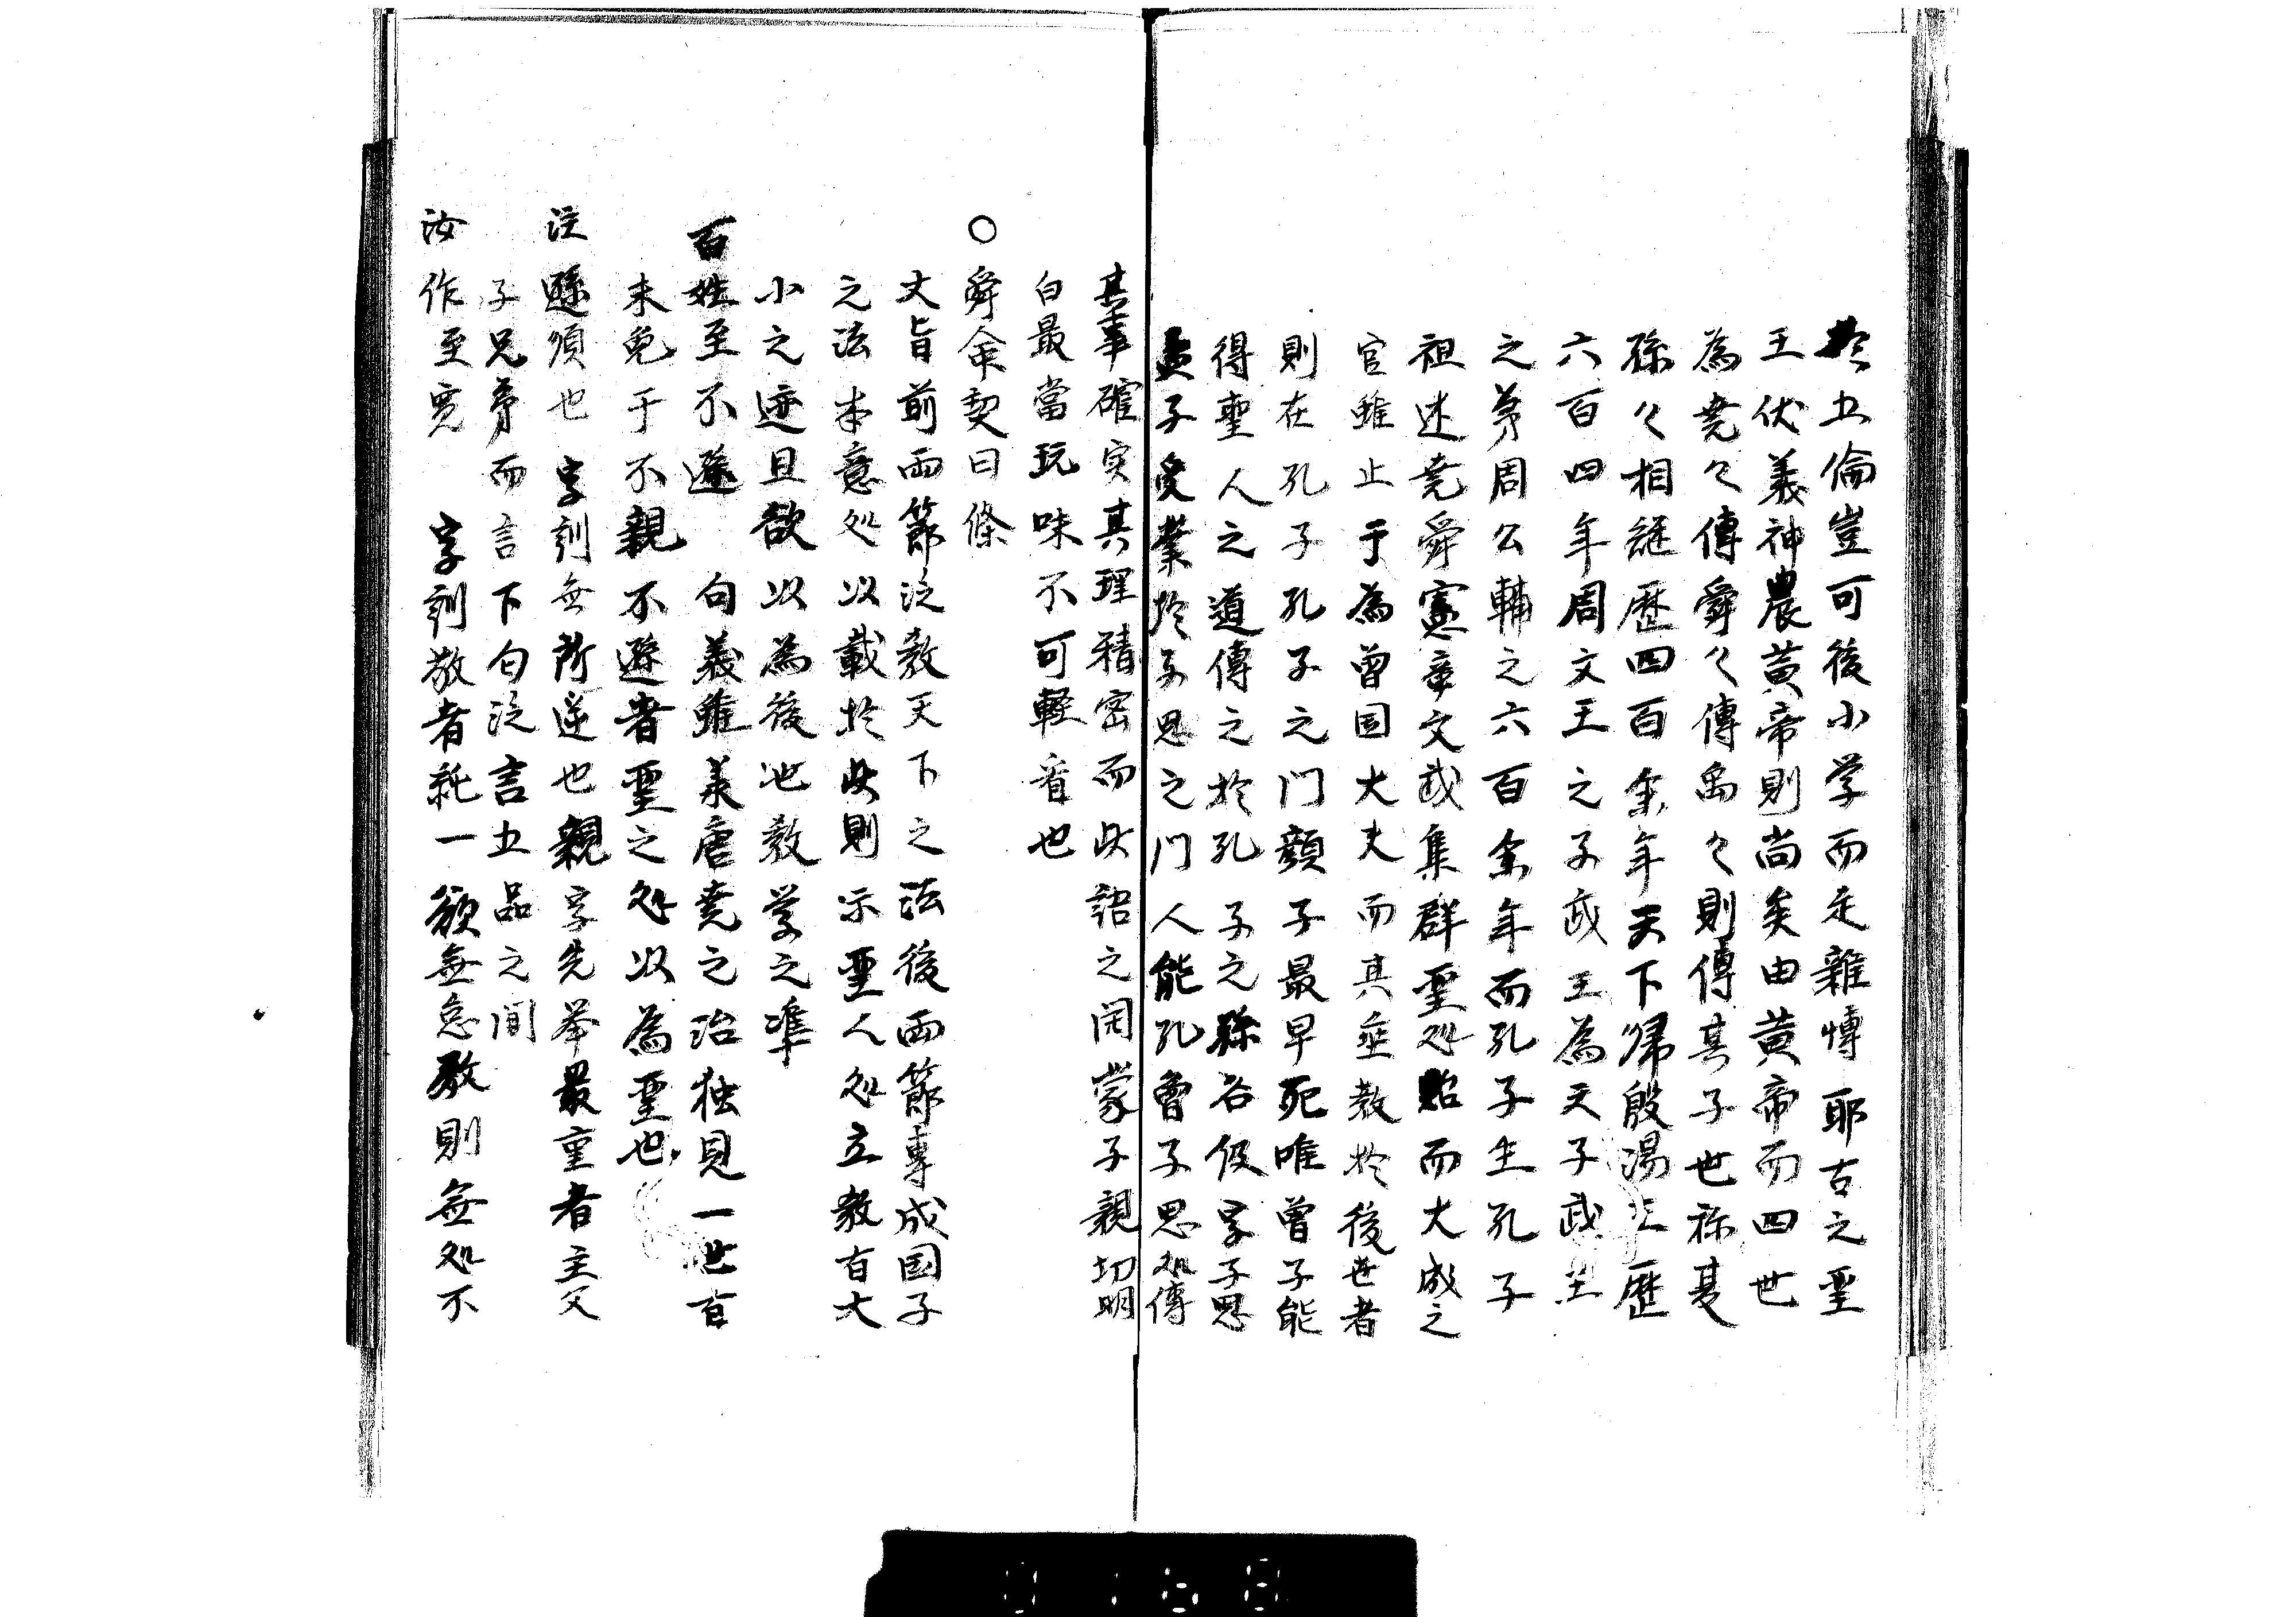 於五倫豈可後小学而走雜慱耶古之聖
王伏羲神農黄帝則尚矣由黄帝而四世
為堯々傳舜々傳禹々則傳其子世称夏
孫々相継歴四百余年天下帰殷湯王歴
六百四年周文王之子武王為天子武王
之弟周公輔之六百余年而孔子生孔子
祖述堯舜憲章文武集群聖処貽而大成之
官雖止于為魯国大夫而其垂教於後世者
則在孔子孔子之门顔子最早死唯曽子能
得聖人之道傳之於孔子之孫名伋字子思
孟子受業於子思之门人能孔曽子思処傳
其事確実其理精密而此詔之閑蒙子親切明
白最當玩味不可輕看也
○舜命契曰條
大旨前両節泛教天下之法後両節專成国子
之法本意処以載於此則示聖人処立教有大
小之迹且欲以為後池教学之準
百姓至不遜　句義雖美唐堯之治独見一世百
未免于不親不遜者聖之処以為聖也
注遜順也　字訓無所逆也親字先举最重者主父
子兄弟而言下句泛言五品之间
汝作至寛　字訓敬者純一額無怠敬則無処不